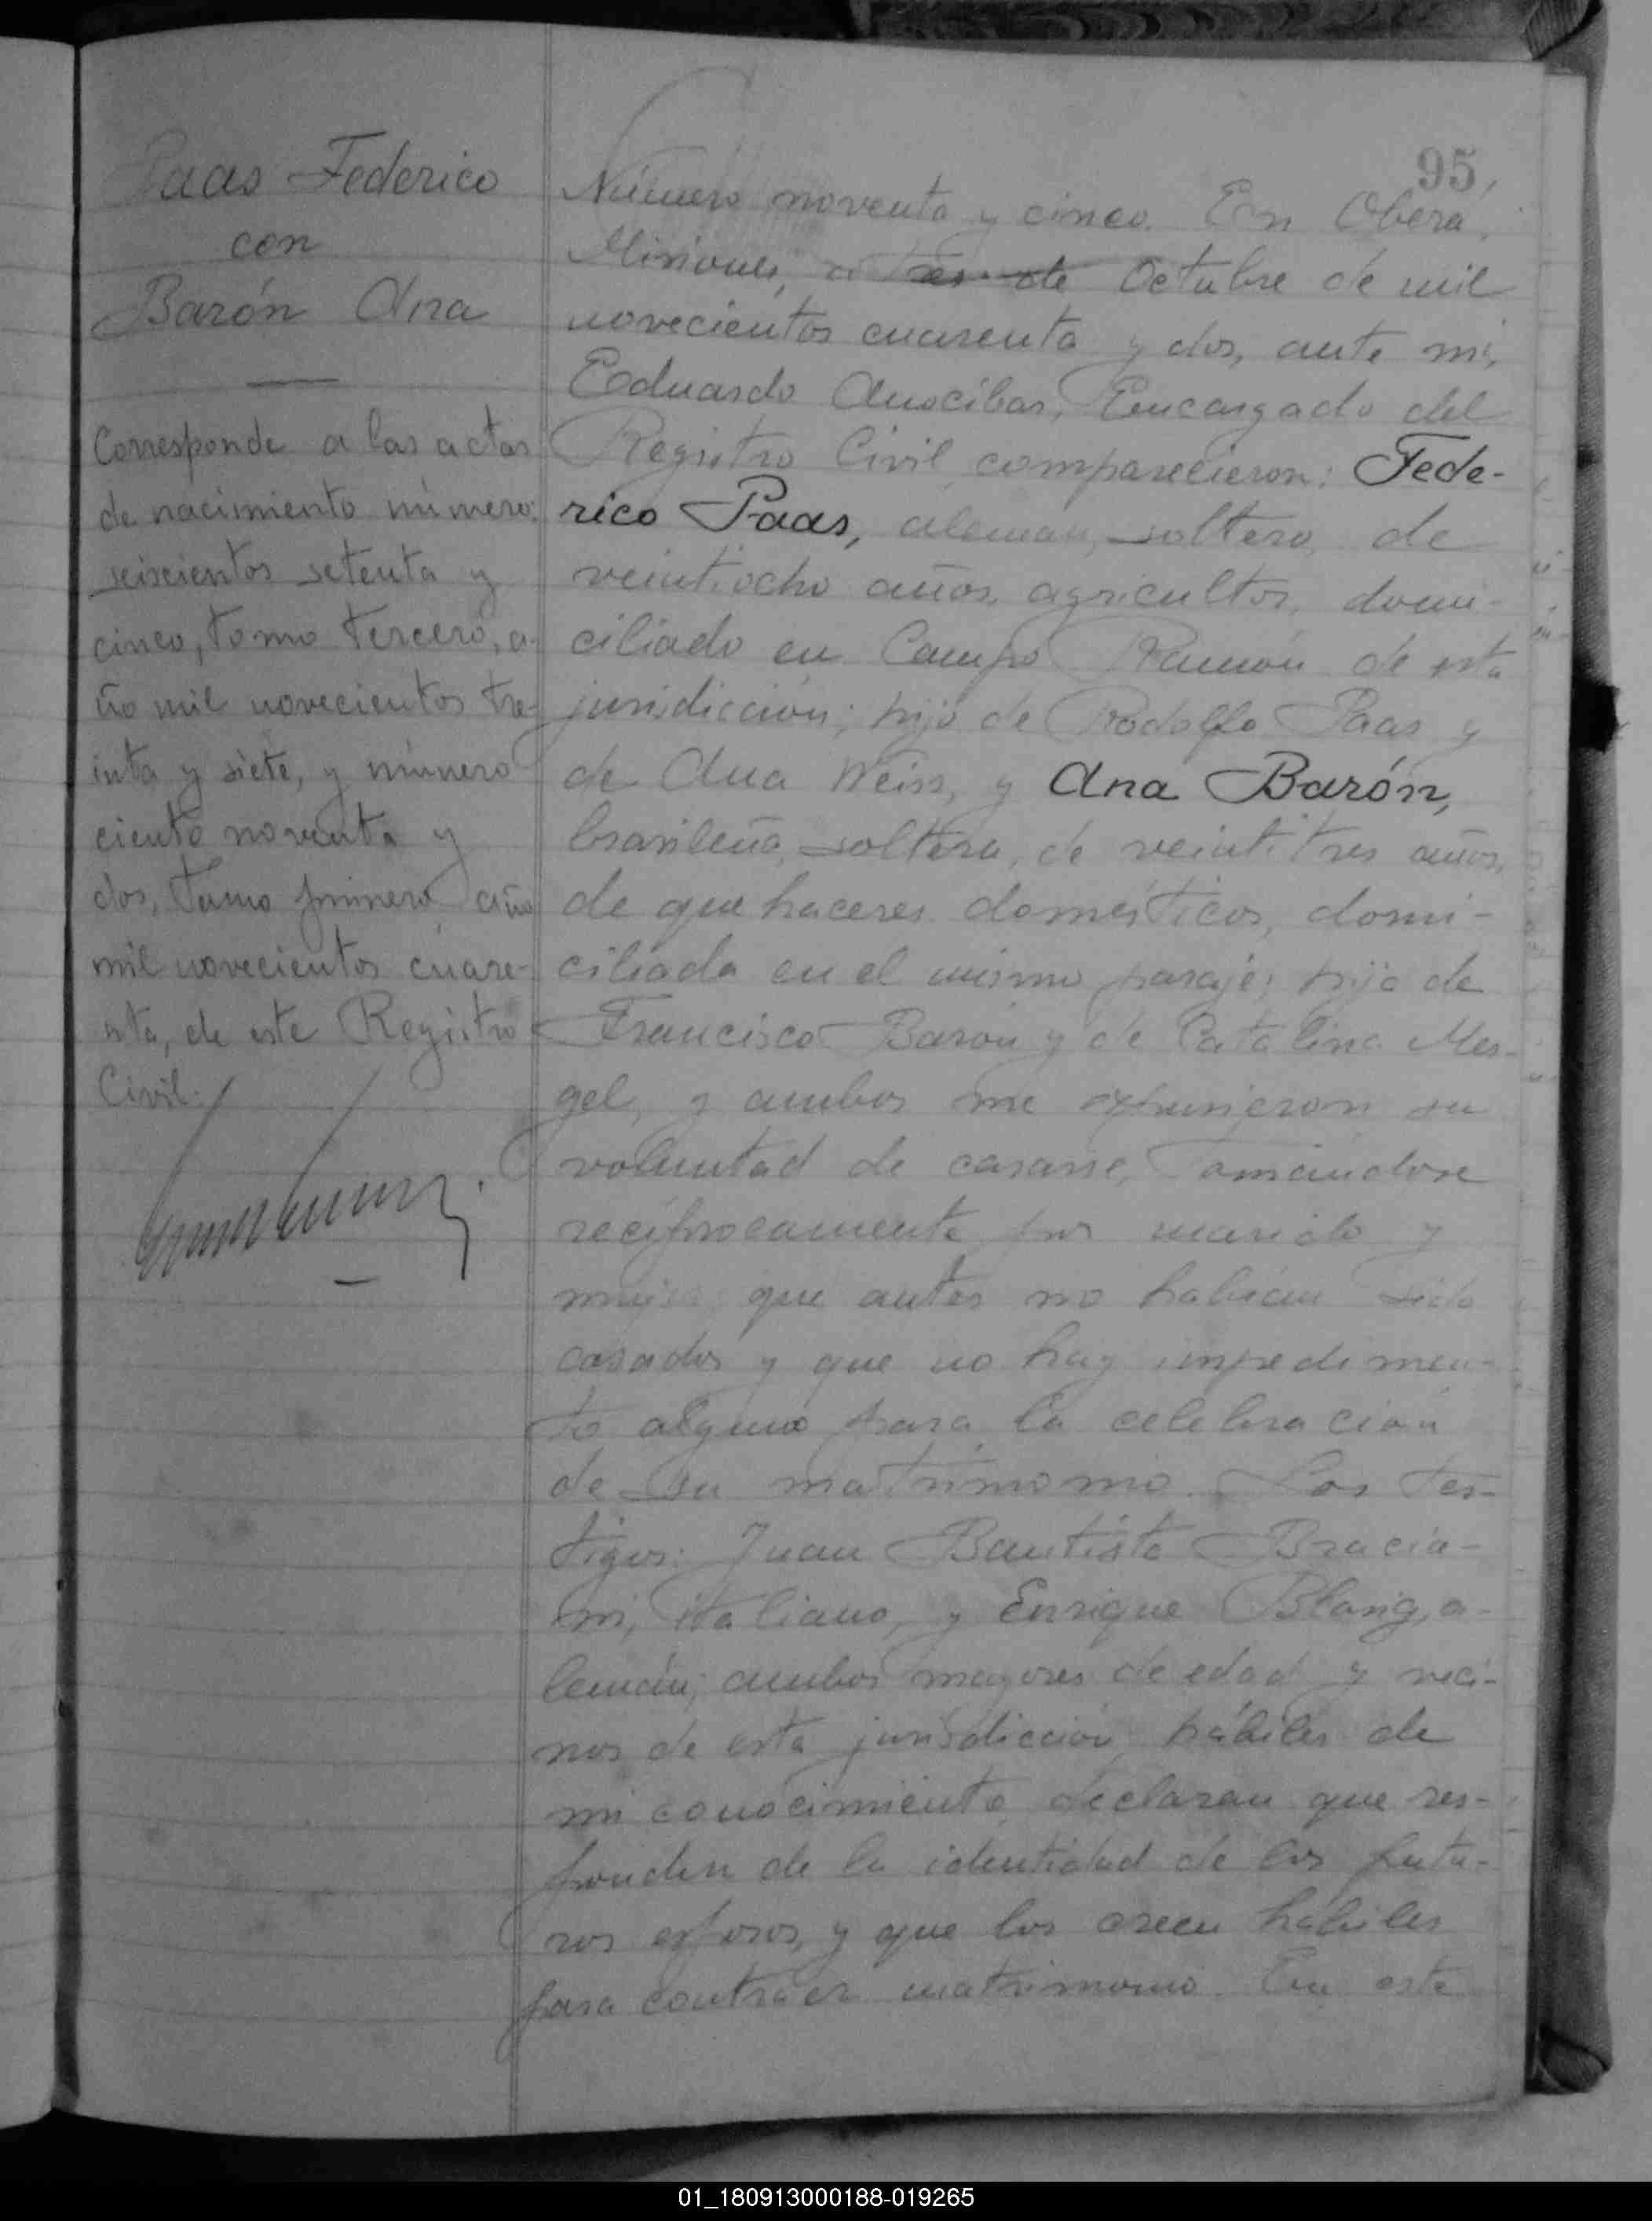 95
Paas Federico
con
Barón Ana
Corresponde a las actas
de nacimiento número:
seiscientos setenta y
cinco, tomo tercero, a-
ño mil novecientos tre-
inta y siete, y número
ciento noventa y
dos, tomo primero año
mil novecientos cuare-
nta, de este Registro
Civil.
Número noventa y cinco. En Oberá,
Misiones, a tres de Octubre de mil
novecientos cuarenta y dos, ante mi,
Eduardo Anocíbar, Encargado del
Registro Civil comparecieron: Fede-
rico Paas, alemán, soltero, de
veintiocho años, agricultor, domi-
ciliado en Campo Ramón de esta
jurisdicción; hijo de Rodolfo Paas y
de Ana Weiss, y Ana Barón,
brasileña, soltera, de veintitres años,
de que haceres domésticos, domi-
ciliada en el mismo paraje; hija de
Francisco Barón y de Catalina Mer-
gel, y ambos me expusieron su
voluntad de casarse, tomándose
recíprocamente por marido y
mujer que antes no habían sido
casados y que no hay impedimen-
to alguno para la celebración
de su matrimonio. Los tes-
tigos: Juan Bautista Bracia-
mi, italiano, y Enrique Blasig, a-
lemán; ambos mayores de edad y veci-
nos de esta jurisdicción, hábiles de
mi conocimiento, declaran que res-
ponden de la identidad de los futu-
ros esposos, y que los creen hábiles
para contraer matrimonio. En este
01_180913000188-019265